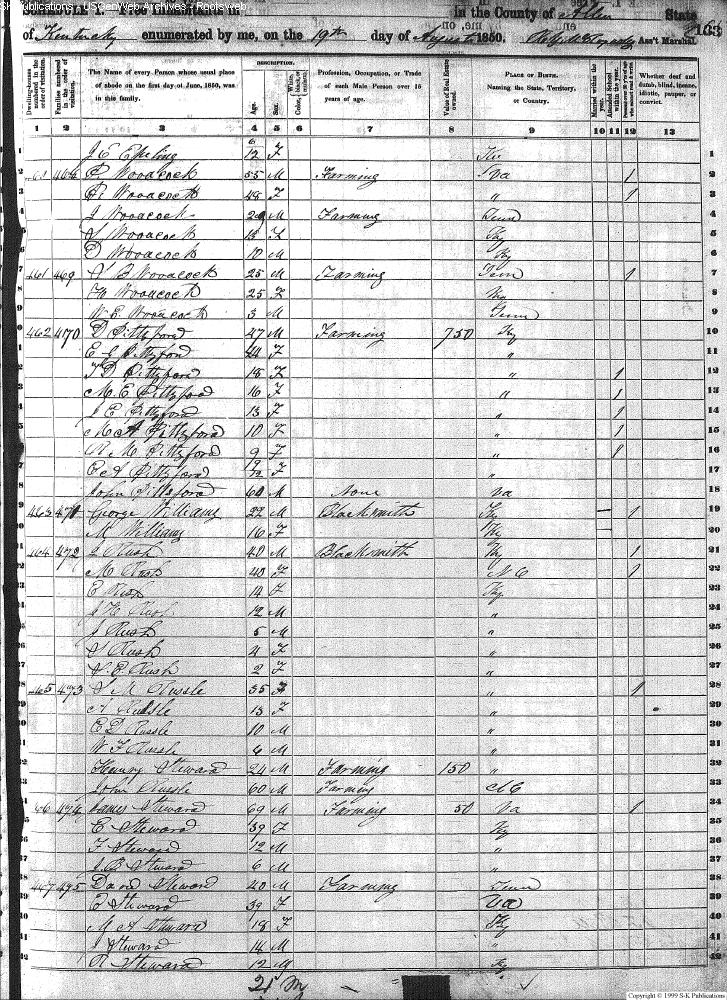 SK Publications - USGenWeb Archives - Rootsweb
SCHEDULE I. Free Inhabitants in in the County of Allen State
of Kentucky enumerated by me, on the 19th day of August 1850. Ass't Marshal. 163
Dwelling-houses numbered in the order of visitation.
Families numbered in the order of visitation.
The Name of every Person whose usual place of abode on the first day of June, 1850, was in this family.
DESCRIPTION.
Age.
Sex.
White, black, or mulatto.
Color,
Profession, Occupation, or Trade of each Male Person over 15 years of age.
Value of Real Estate owned.
PLACE OF BIRTH. Naming the State, Territory, or Country.
Married within the year.
Attended School within the year.
Persons over 20 y'rs of age who cannot read & write.
Whether deaf and dumb, blind, insane, idiotic, pauper, or convict.
1 2 3 4 5 6 7 8 9 10 11 12 13
1 J E Epling 6/12 F Ky 1
2 468 P. Woodcock 55 M Farming Va 1 2
3 Woodcock 48 F " 1 3
4 J Woodcock 20 M Farming Tenn 4
5 S Woodcock 13 F Ky 5
6 D Woodcock 10 M Ky 6
7 461 469 S B Woodcock 25 M Farming Tenn 1 7
8 Woodcock 25 F Ky 8
9 W E Woodcock 3 M Tenn 9
10 462 470 D Pittsford 47 M Farming 750 Ky 10
11 E Pittsford 44 F " 11
12 T D Pittsford 18 F " 1 12
13 M. E Pittsford 16 F " 1 13
14 J E Pittsford 13 F " 1 14
15 M A Pittsford 10 F " 1 15
16 R M Pittsford 9 F " 1 16
17 E A Pittsford F " 17
18 John Pittsford 60 M None Va 18
19 463 471 George Williams 22 M Blacksmith Ky 1 19
20 M Williams 16 F Ky 20
21 464 472 J Rush 40 M Blacksmith Ky 1 21
22 M Rush 40 F N C 1 22
23 E Rush 14 F Ky 23
24 J H Rush 12 M " 24
25 J Rush 5 M " 25
26 S Rush 4 F " 26
27 S. E Rush 2 F " 27
28 465 473 S M Russle 35 F " 1 28
29 A Russle 13 F " 29
30 E D Russle 10 M " 30
31 W F Russle 6 M " 31
32 Henry Steward 24 M Farming 150 " 32
33 John Russle 60 M Farming N C 33
34 466 474 James Steward 69 M Farming 50 Va 1 34
35 E Steward 39 F Ky 35
36 F Steward 12 M " 36
37 J. B Steward 6 M " 37
38 467 495 David Steward 40 M Farming Tenn 38
39 E Steward 39 F Va 39
40 M A Steward 18 F Ky 40
41 J Steward 14 M " 41
42 R Steward 12 M Ky 42
21 M
Copyright © 1999 S-K Publications